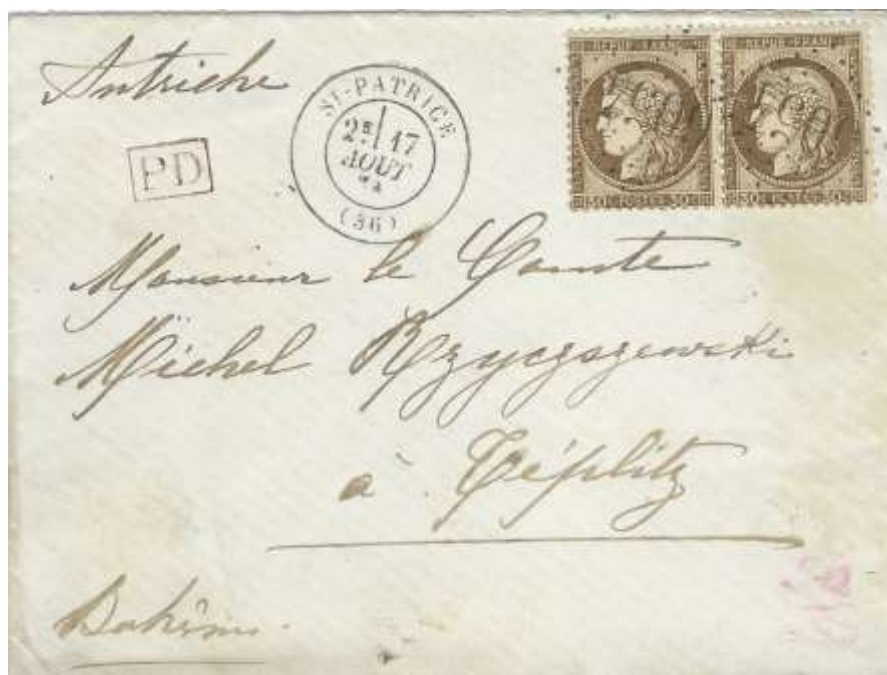 Autriche
ST-PATRICE
2E 17
AOUT
74
(36)
PD
REPUB FRANC
30 C POSTES 30 C
REPUB FRANC
30 C POSTES 30 C
Monsieur le Comte
Michel Rzyczszewski
à Téplitz
Bohême